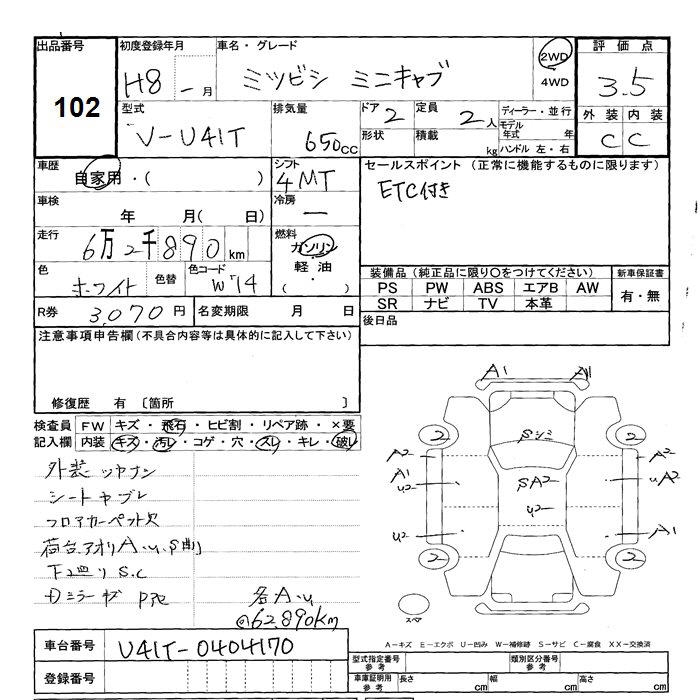 出品番号 初度登録年月 車名・グレード 評価点
102
H8 年 - 月 ミツビシ ミニキャブ 2WD 4WD 3.5
型式 排気量 ドア 2 定員 2人 ディーラー・並行 外装 内装
V-U41T 650cc 形状 積載 kg モデル年式 年 C C
ハンドル 左・右
車歴 自家用・( ) シフト 4MT セールスポイント (正常に機能するものに限ります)
ETC付き
車検 年 月( 日) 冷房 ー
走行 6万2千890km 燃料 ガソリン・軽油・( )
色 ホワイト 色替 色コード W14
装備品(純正品に限り○をつけてください) 新車保証書
PS PW ABS エアB AW 有・無
SR ナビ TV 本革
R券 3,070円 名変期限 月 日
後日品
注意事項申告欄(不具合内容等は具体的に記入して下さい)
修復歴 有 〔箇所 〕
検査員記入欄 FW キズ・飛石・ヒビ割・リペア跡・×要
内装 キズ・汚レ・コゲ・穴・スレ・キレ・破レ
外装ツヤナシ
シートヤブレ
フロアカーペット欠
荷台アオリA.u.S
下廻りS.C
各A.u
@62,890km
A1 A1
2 Sシミ 2
A2 A2
A1 SA2 uA2
u2 u2
u2 A1
2 2
スペア
A-キズ E-エクボ U-凹み W-補修跡 S-サビ C-腐食 XX-交換済
車台番号 U41T-0404170
登録番号
型式指定番号 参考 類別区分番号 参考
車庫証明用 参考 長さ cm 幅 cm 高さ cm